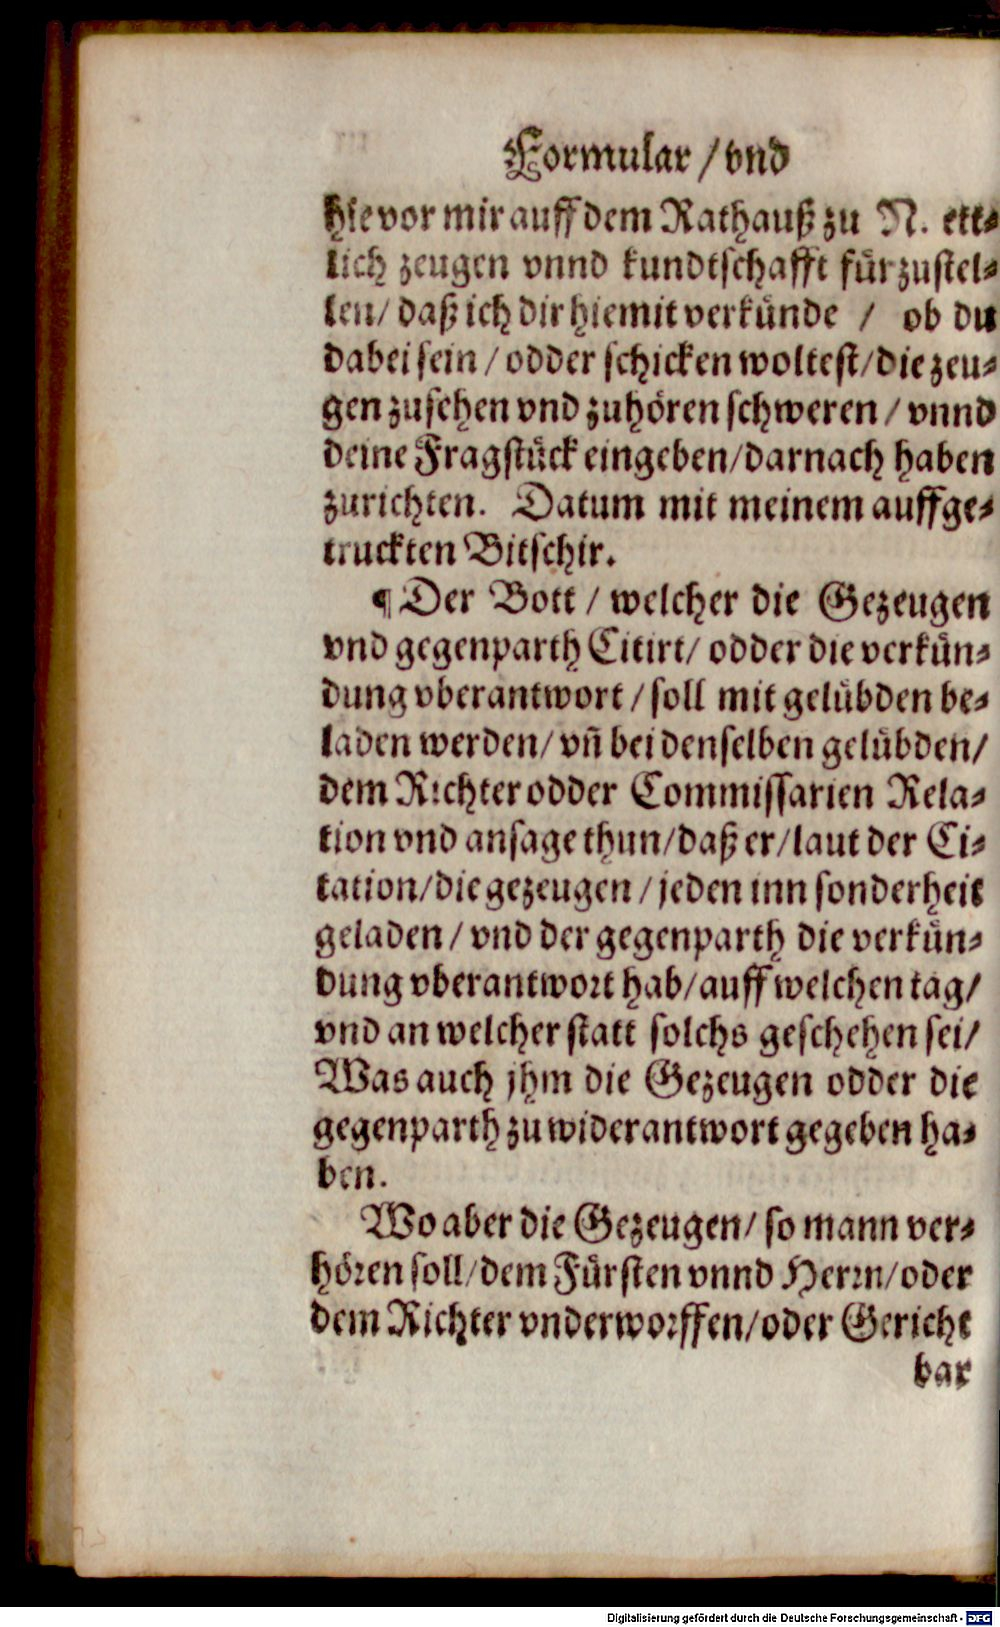 Formular / vnd
hie vor mir auff dem Rathauß zu N. ett-
lich zeugen vnnd kundtschafft fürzustel-
len / daß ich dir hiemit verkünde / ob du
dabei sein / odder schicken woltest / die zeu-
gen zusehen vnd zuhören schweren / vnnd
deine Fragstück eingeben / darnach haben
zurichten. Datum mit meinem auffge-
truckten Bitschir.
¶ Der Bott / welcher die Gezeugen
vnd gegenparth Citirt / odder die verkün-
dung vberantwort / soll mit gelübden be-
laden werden / vñ bei denselben gelübden /
dem Richter odder Commissarien Rela-
tion vnd ansage thun / daß er / laut der Ci-
tation / die gezeugen / jeden inn sonderheit
geladen / vnd der gegenparth die verkün-
dung vberantwort hab / auff welchen tag /
vnd an welcher statt solchs geschehen sei /
Was auch jhm die Gezeugen odder die
gegenparth zu widerantwort gegeben ha-
ben.
Wo aber die Gezeugen / so mann ver-
hören soll / dem Fürsten vnnd Herrn / oder
dem Richter vnderworffen / oder Gericht
bar
Digitalisierung gefördert durch die Deutsche Forschungsgemeinschaft - DFG